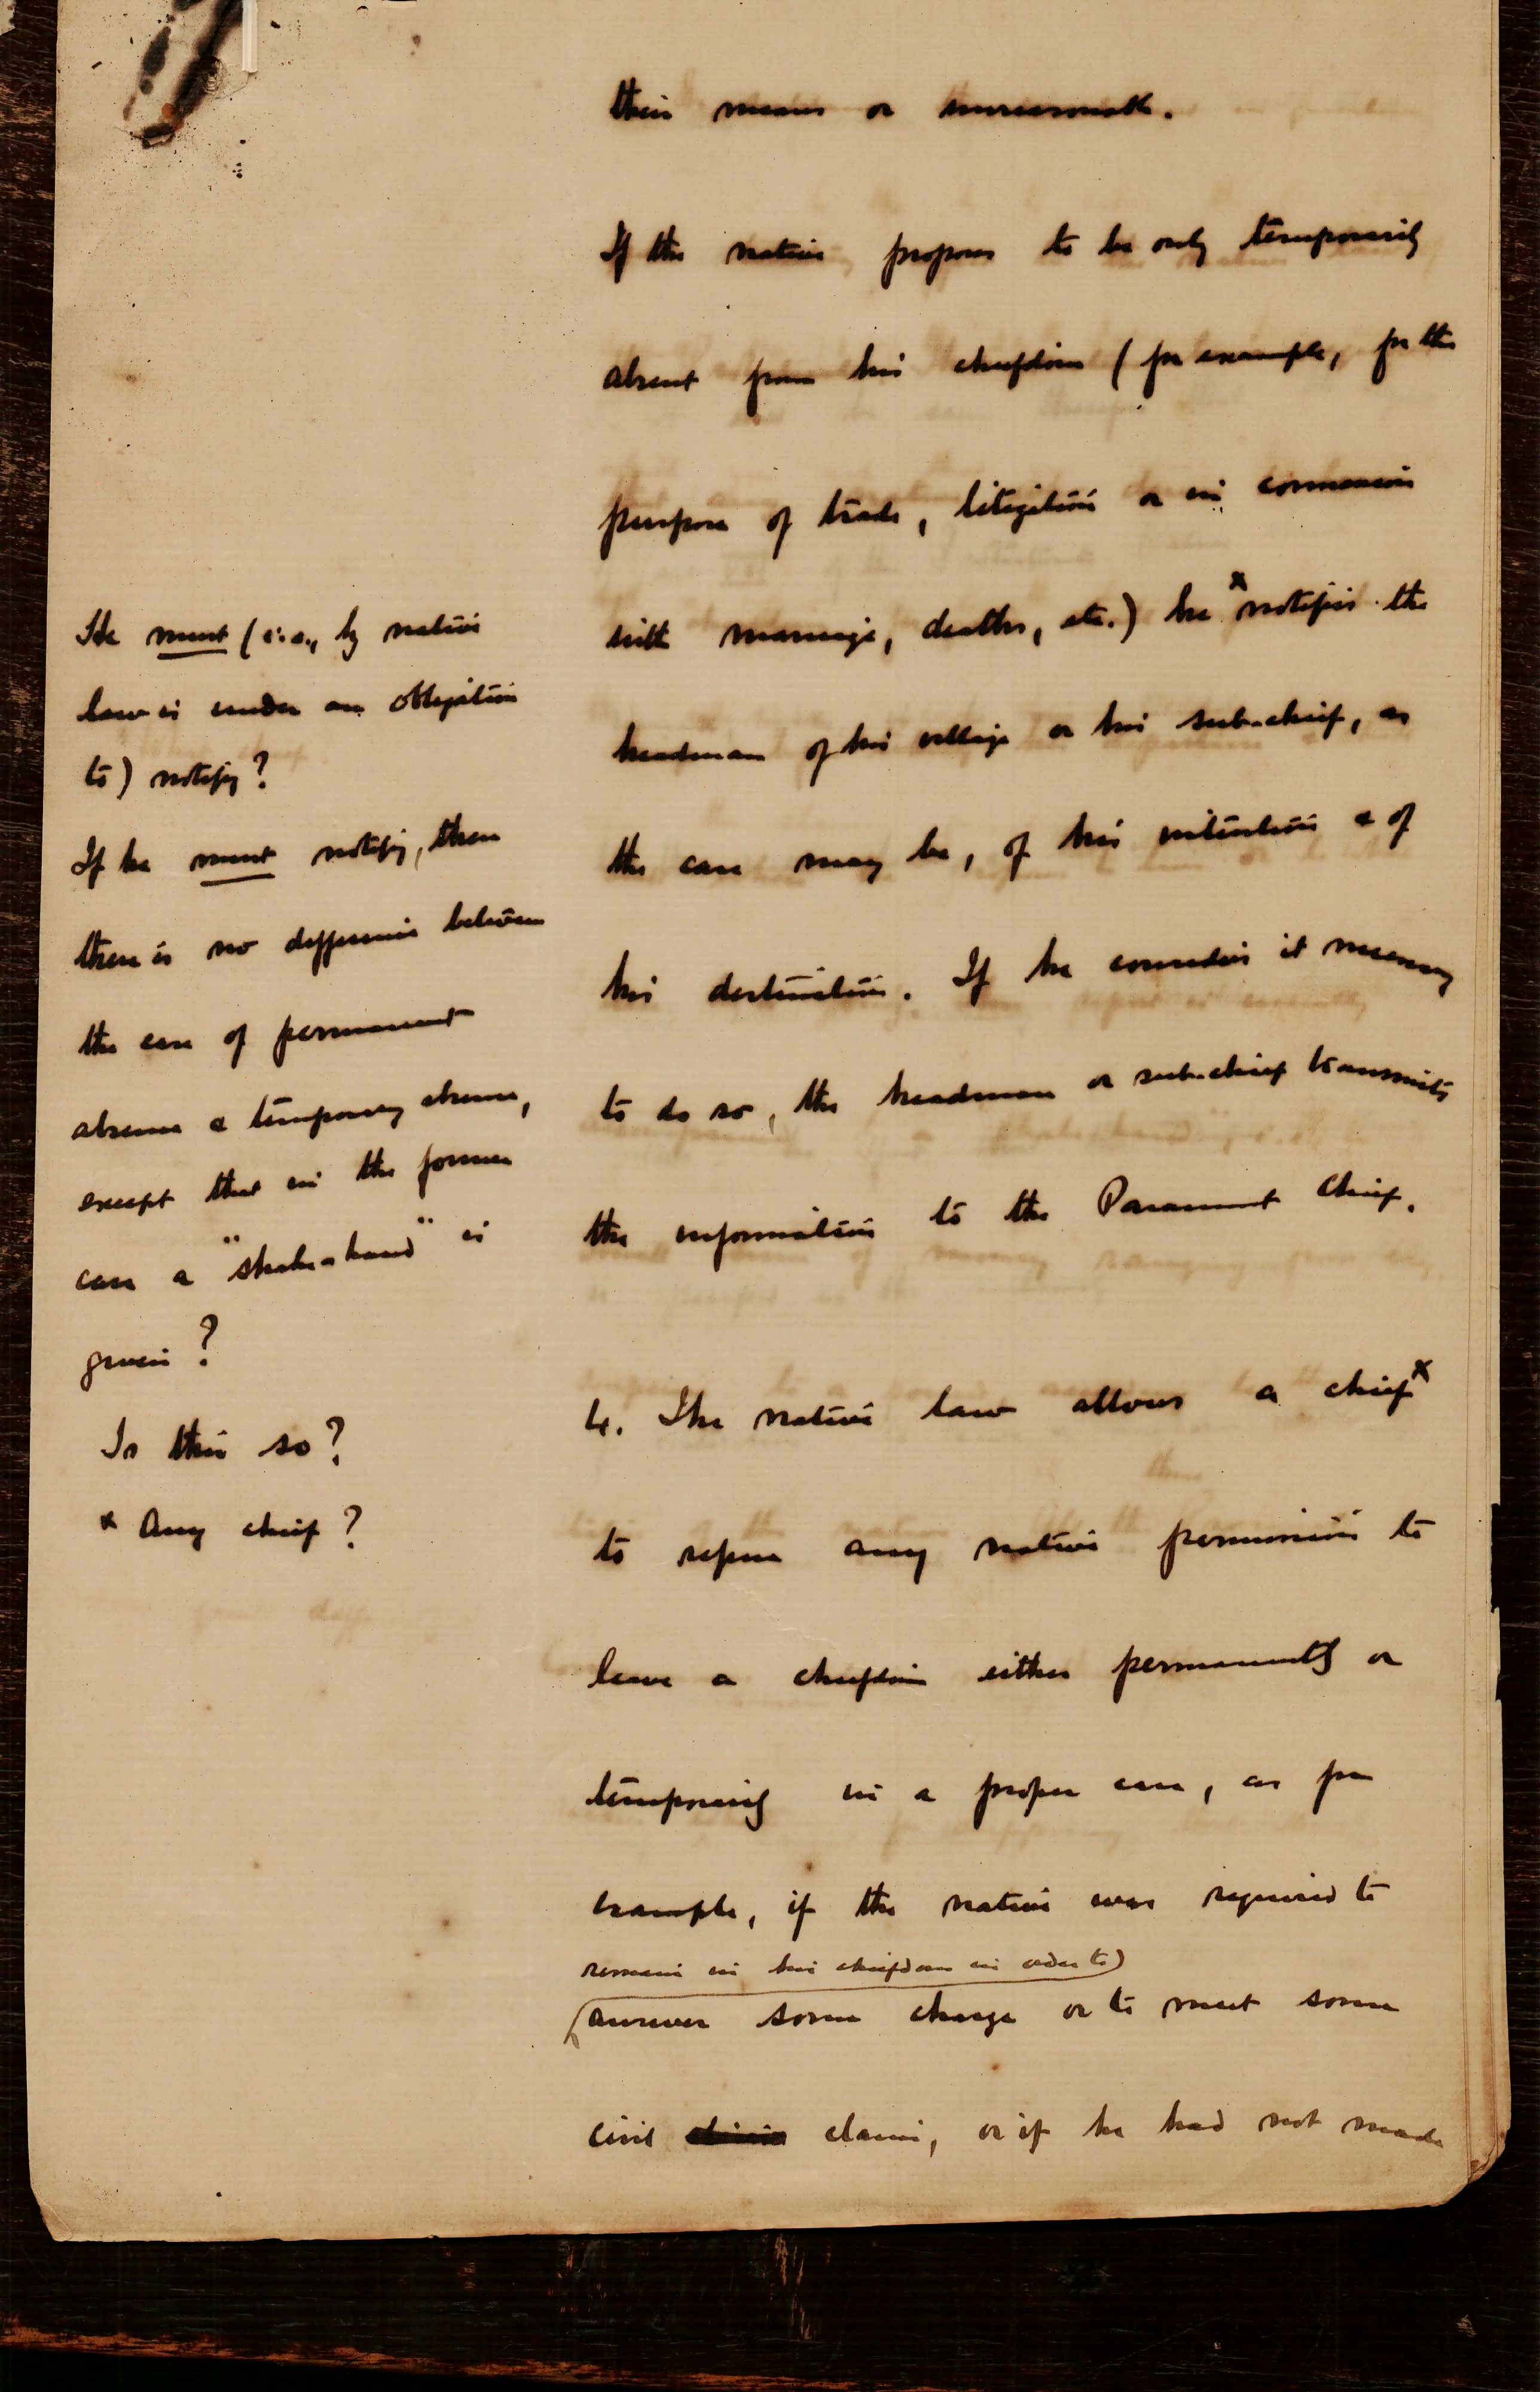 their means or unreasonable.
If the native proposes to be only temporarily
absent from his chiefdom (for example, for the
purpose of trade, litigation or in connexion
with marriage, deaths, etc.) he x notifies the
headman of his village or his sub-chief, as
the case may be, of his intention & of
his destination. If he considers it necessary
to do so, the headman or sub-chief transmits
the information to the Paramount Chief.
4. The native law allows a chief x
to refuse any native permission to
leave a chiefdom either permanently or
temporarily in a proper case, as for
example, if the native was required to
remain in his chiefdom in order to)
(answer some charge or to meet some
civil claim, or if he had not made
He must (i.e., by native
law is under an obligation
to) notify?
If he must notify, then
there is no difference between
the case of permanent
absence & temporary absence,
except that in the former
case a "shake-hand" is
given?
Is this so?
x Any chief?